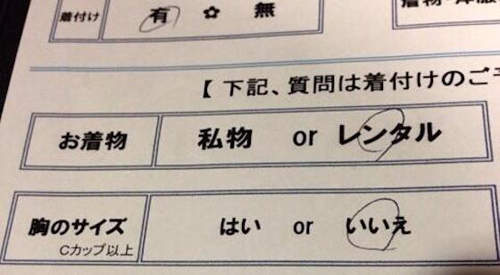 着付け 有 ✿ 無
【 下記、質問は着付けのご
お着物 私物 or レンタル
胸のサイズ はい or いいえ
Cカップ以上